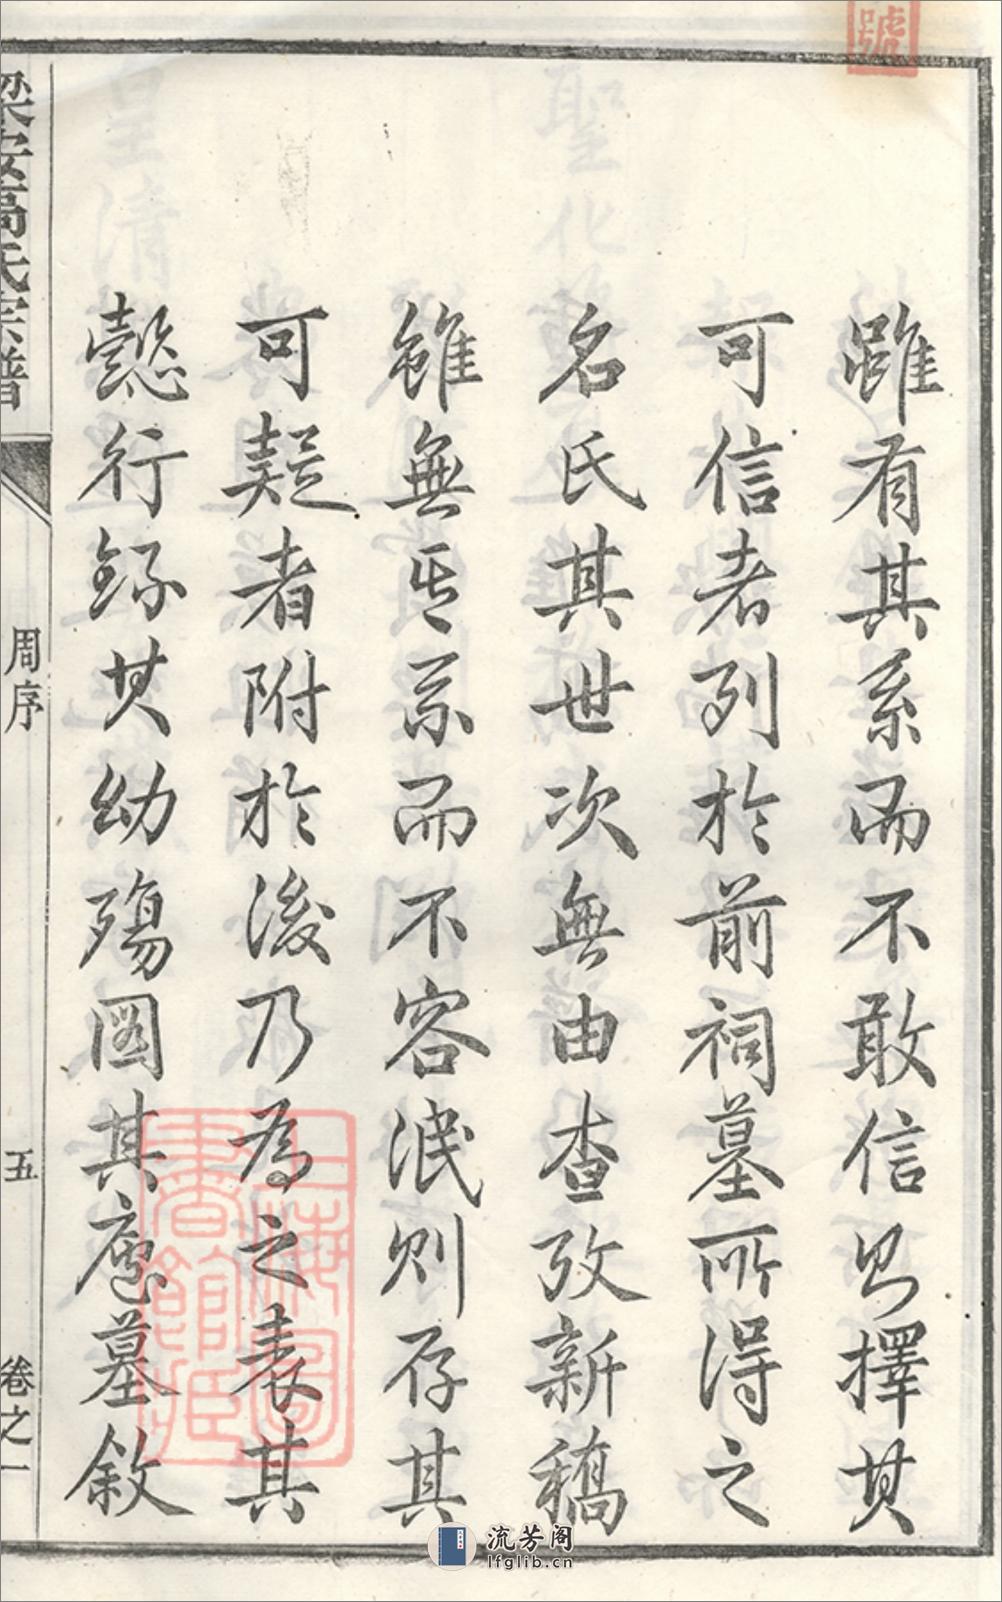 號
雖有其系而不敢信則擇其
可信者列於前祠墓所得之
名氏其世次無由查攷新稿
雖無其系而不容泯則存其
可疑者附於後乃為之表其
懿行錄其幼殤圖其廬墓敘
梁安高氏宗譜
周序
五
卷之一
上海圖
書館藏
流芳阁
lfglib.cn